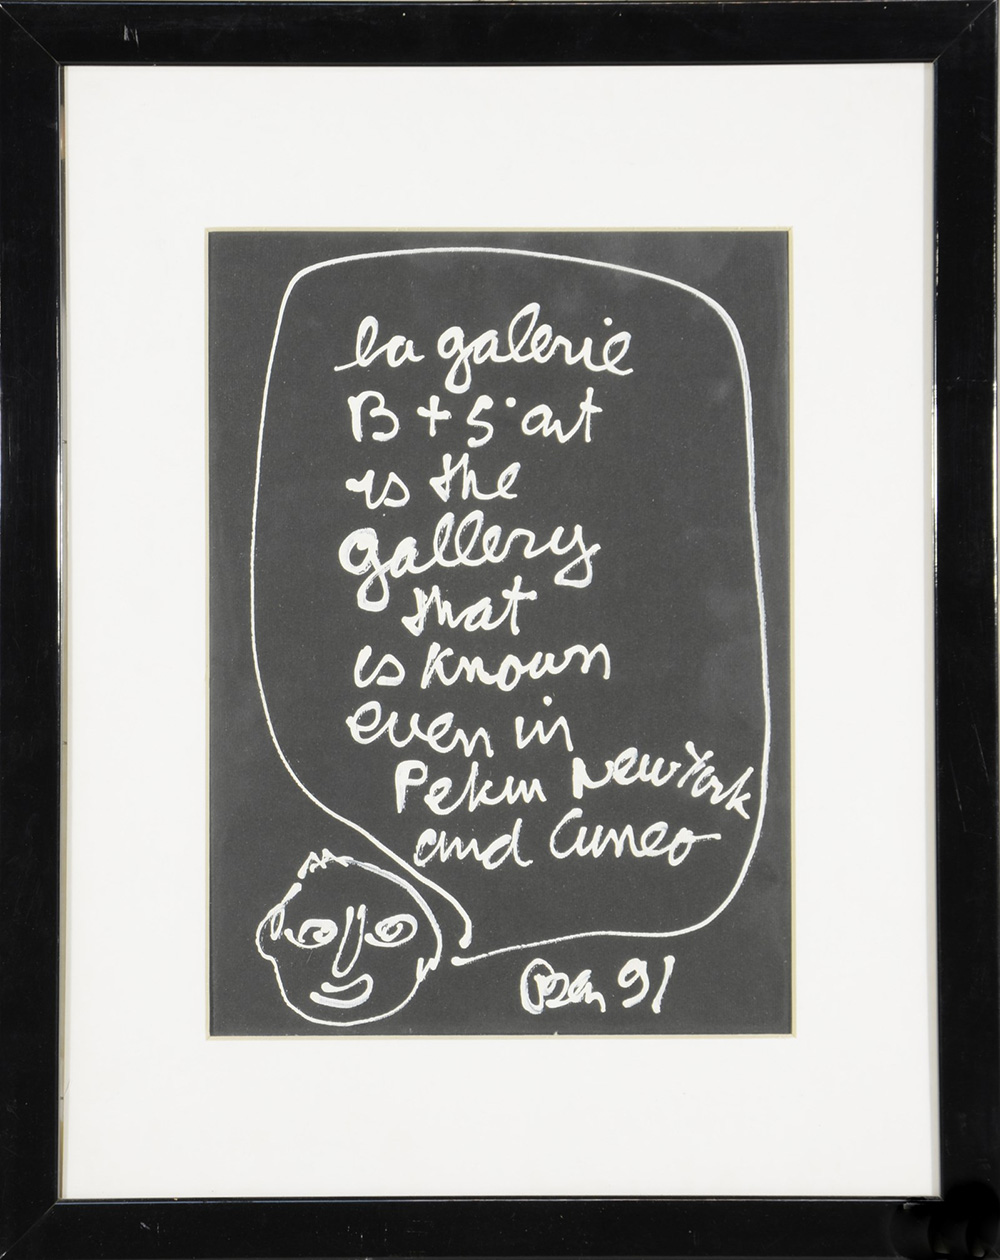 la galerie
B + S. art
is the
gallery
that
is known
even in
Pekin New York
and Cuneo
Ben 91